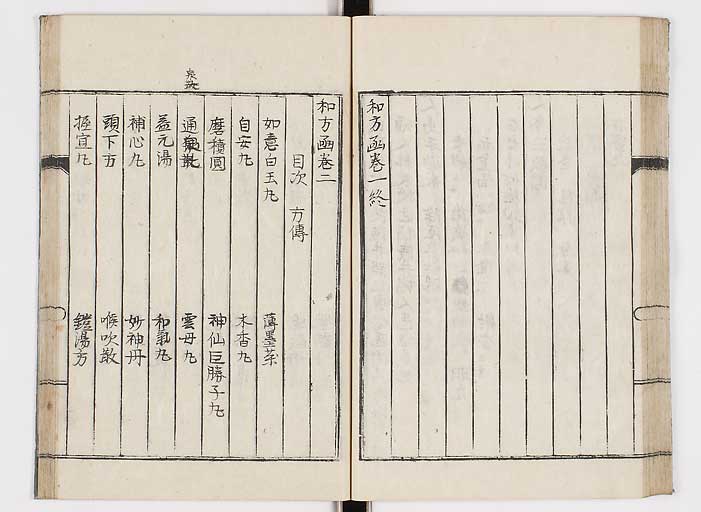 和方函卷一終
和方函卷二
目次 方傳
如意白玉丸 薄墨茶
自安丸 木香丸
磨積圓 神仙巨勝子丸
通散 雲母丸
益元湯 和氣丸
補心丸 妙神丹
頭下方 喉吹散
揑宜丸 鎧湯方